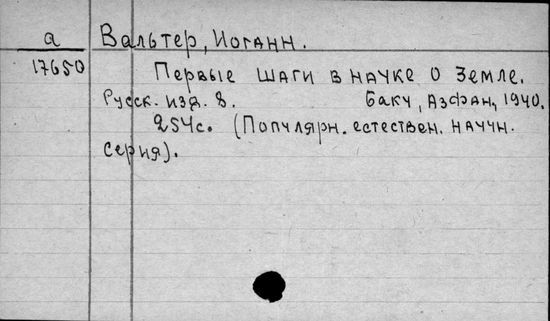 а Вальтер, Иоганн.
17650
Первые шаги в науке о Земле.
Русск. изд. 8. Баку, Азфан, 1940.
254с. (Популярн. естествен. научн.
серия).